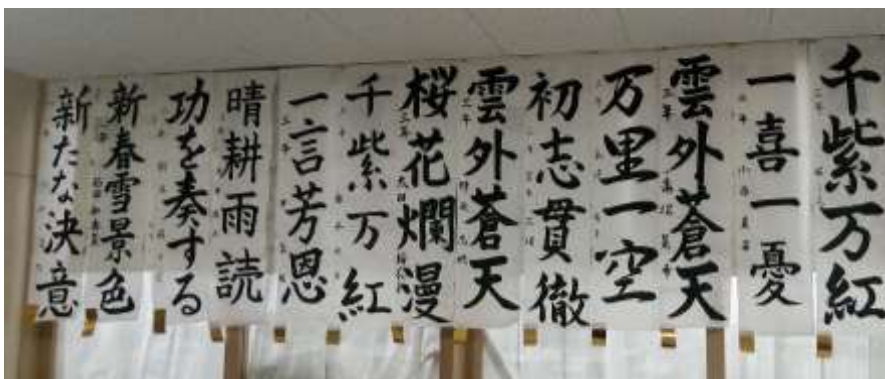 千紫万紅
一喜一憂
雲外蒼天
万里一空
初志貫徹
雲外蒼天
桜花爛漫
千紫万紅
一言芳恩
晴耕雨読
功を奏する
新春雪景色
新たな決意